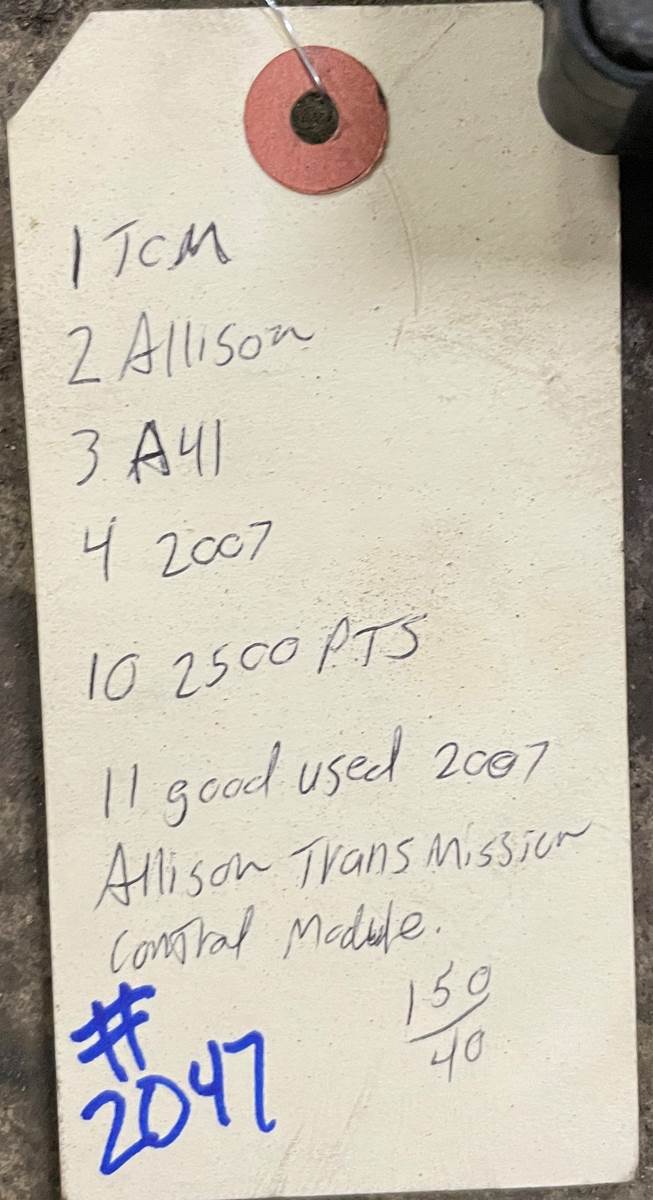 1 TCM
2 Allison
3 A41
4 2007
10 2500 PTS
11 good used 2007
Allison Transmission
Control Module.
150
40
#
2047